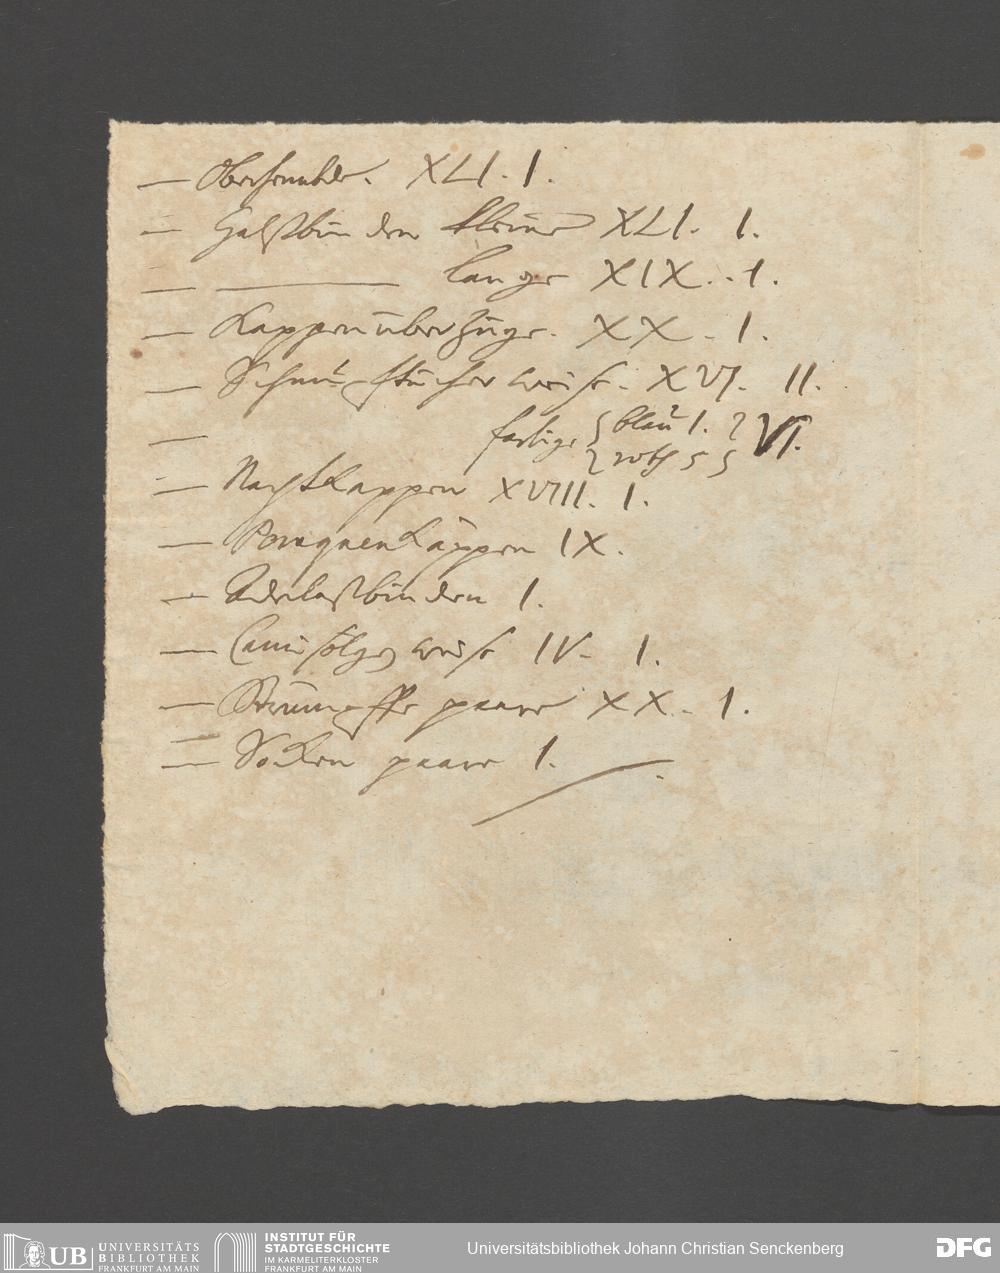 — Oberhembder. XLI. I.
— Halsbinden kleine XLI. I.
— ——— lange XIX.. I.
— Kappenüberzüge. XX. I.
— Schnupftücher weise. XVI. II.
— farbige { blau I. } VI.
{ roth 5 }
— Nachtkappen XVIII. I.
— Peruquenkappen IX.
— Aderlaßbinden I.
— Camisölger weise IV. I.
— Strümpffe paare XX. I.
— Socken paare I.
UB UNIVERSITÄTS
BIBLIOTHEK
FRANKFURT AM MAIN
INSTITUT FÜR
STADTGESCHICHTE
IM KARMELITERKLOSTER
FRANKFURT AM MAIN
Universitätsbibliothek Johann Christian Senckenberg
DFG